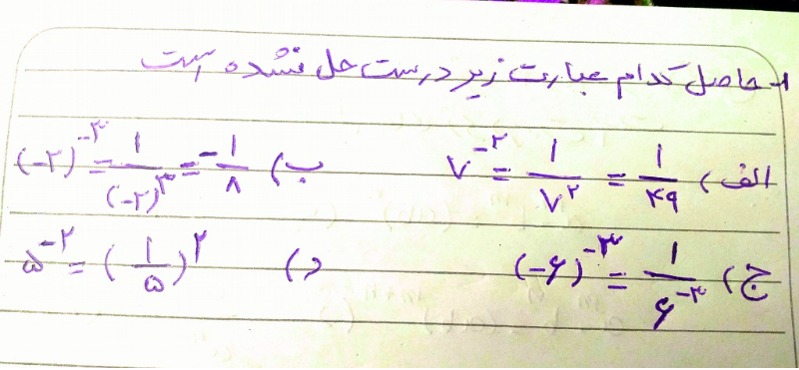 ۱- حاصل کدام عبارت زیر درست حل نشده است
الف) ۷⁻² = ۱/۷² = ۱/۴۹ ب) (-۲)⁻³ = ۱/(-۲)³ = -۱/۸
ج) (-۶)⁻³ = ۱/۶⁻³ د) ۵⁻² = (۱/۵)²